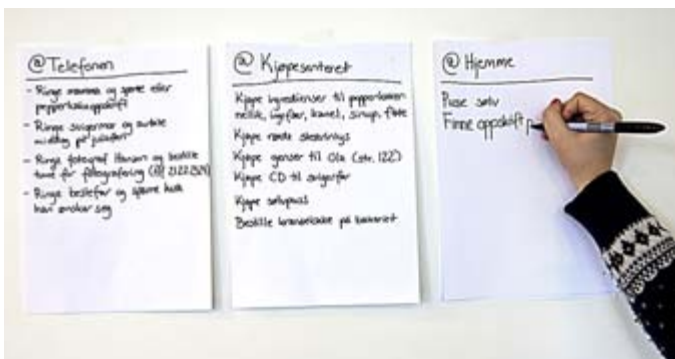 @ Telefonen
- Ringe mamma og spørre etter
pepperkakeoppskrift
- Ringe svigermor og avtale
middag på julaften
- Ringe fotograf Hansen og bestille
time for fotografering
- Ringe bestefar og spørre hva
han ønsker seg
@ Kjøpesenteret
Kjøpe ingredienser til pepperkaker:
nellik, ingefær, kanel, sirup, fløte
Kjøpe røde stearinlys
Kjøpe genser til Ola (str. 122)
Kjøpe CD til svigerfar
Kjøpe sølvpuss
Bestille kransekake på bakeriet
@ Hjemme
Pusse sølv
Finne oppskift p